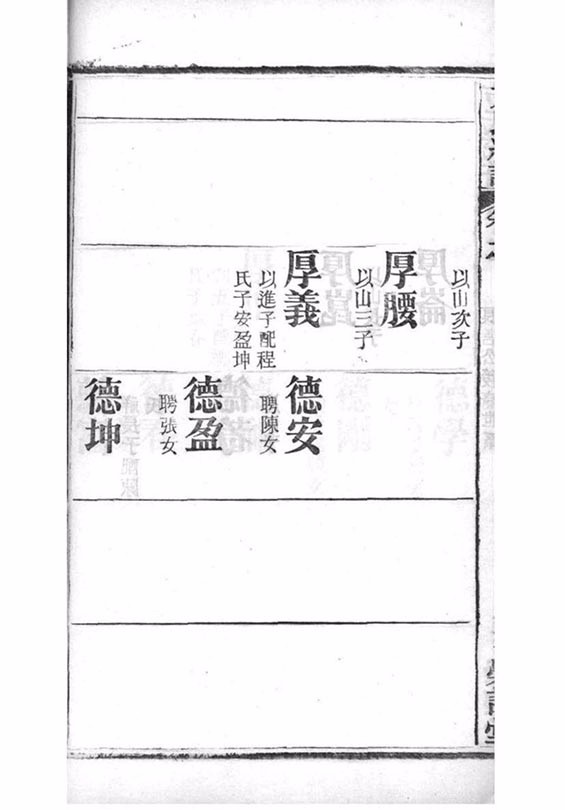 以山次子
厚腰
以山三子
厚義
以進子配程
氏子安盈坤
德安
聘陳女
德盈
聘張女
德坤